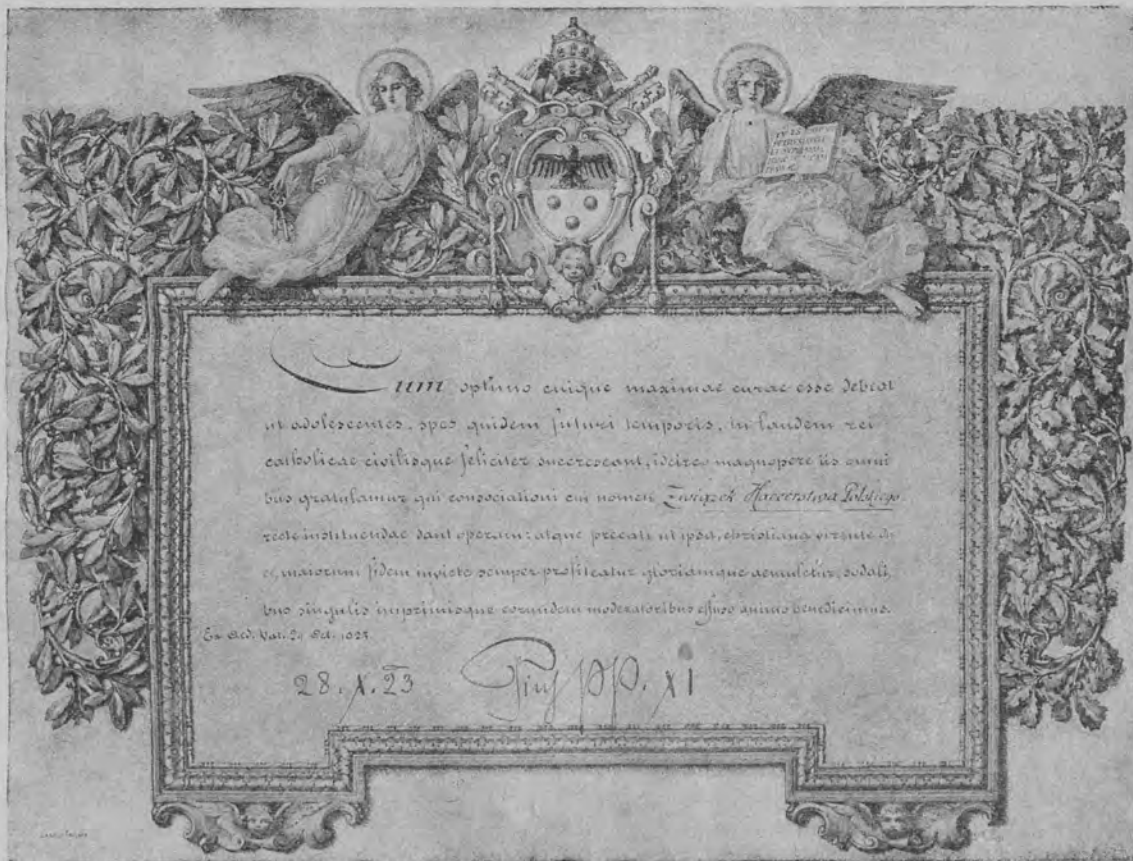 Cum optimo cuique maximae curae esse debeat
ut adolescentes, spes quidem futuri temporis, in laudem rei
catholicae civilisque feliciter succrescant, idcirco magnopere iis omni
bus gratulamur qui consociationi cui nomen Związek Harcerstwa Polskiego
recte instituendae dant operam: atque precati ut ipsa, christiana virtute
maiorum fidem invicte semper profiteatur gloriamque aemuletur, sodali
bus singulis imprimisque eorumdem moderatoribus effuso animo benedicimus.
Ex Aed. Vat. Oct. 1923.
28. X. 23 Pius PP. XI